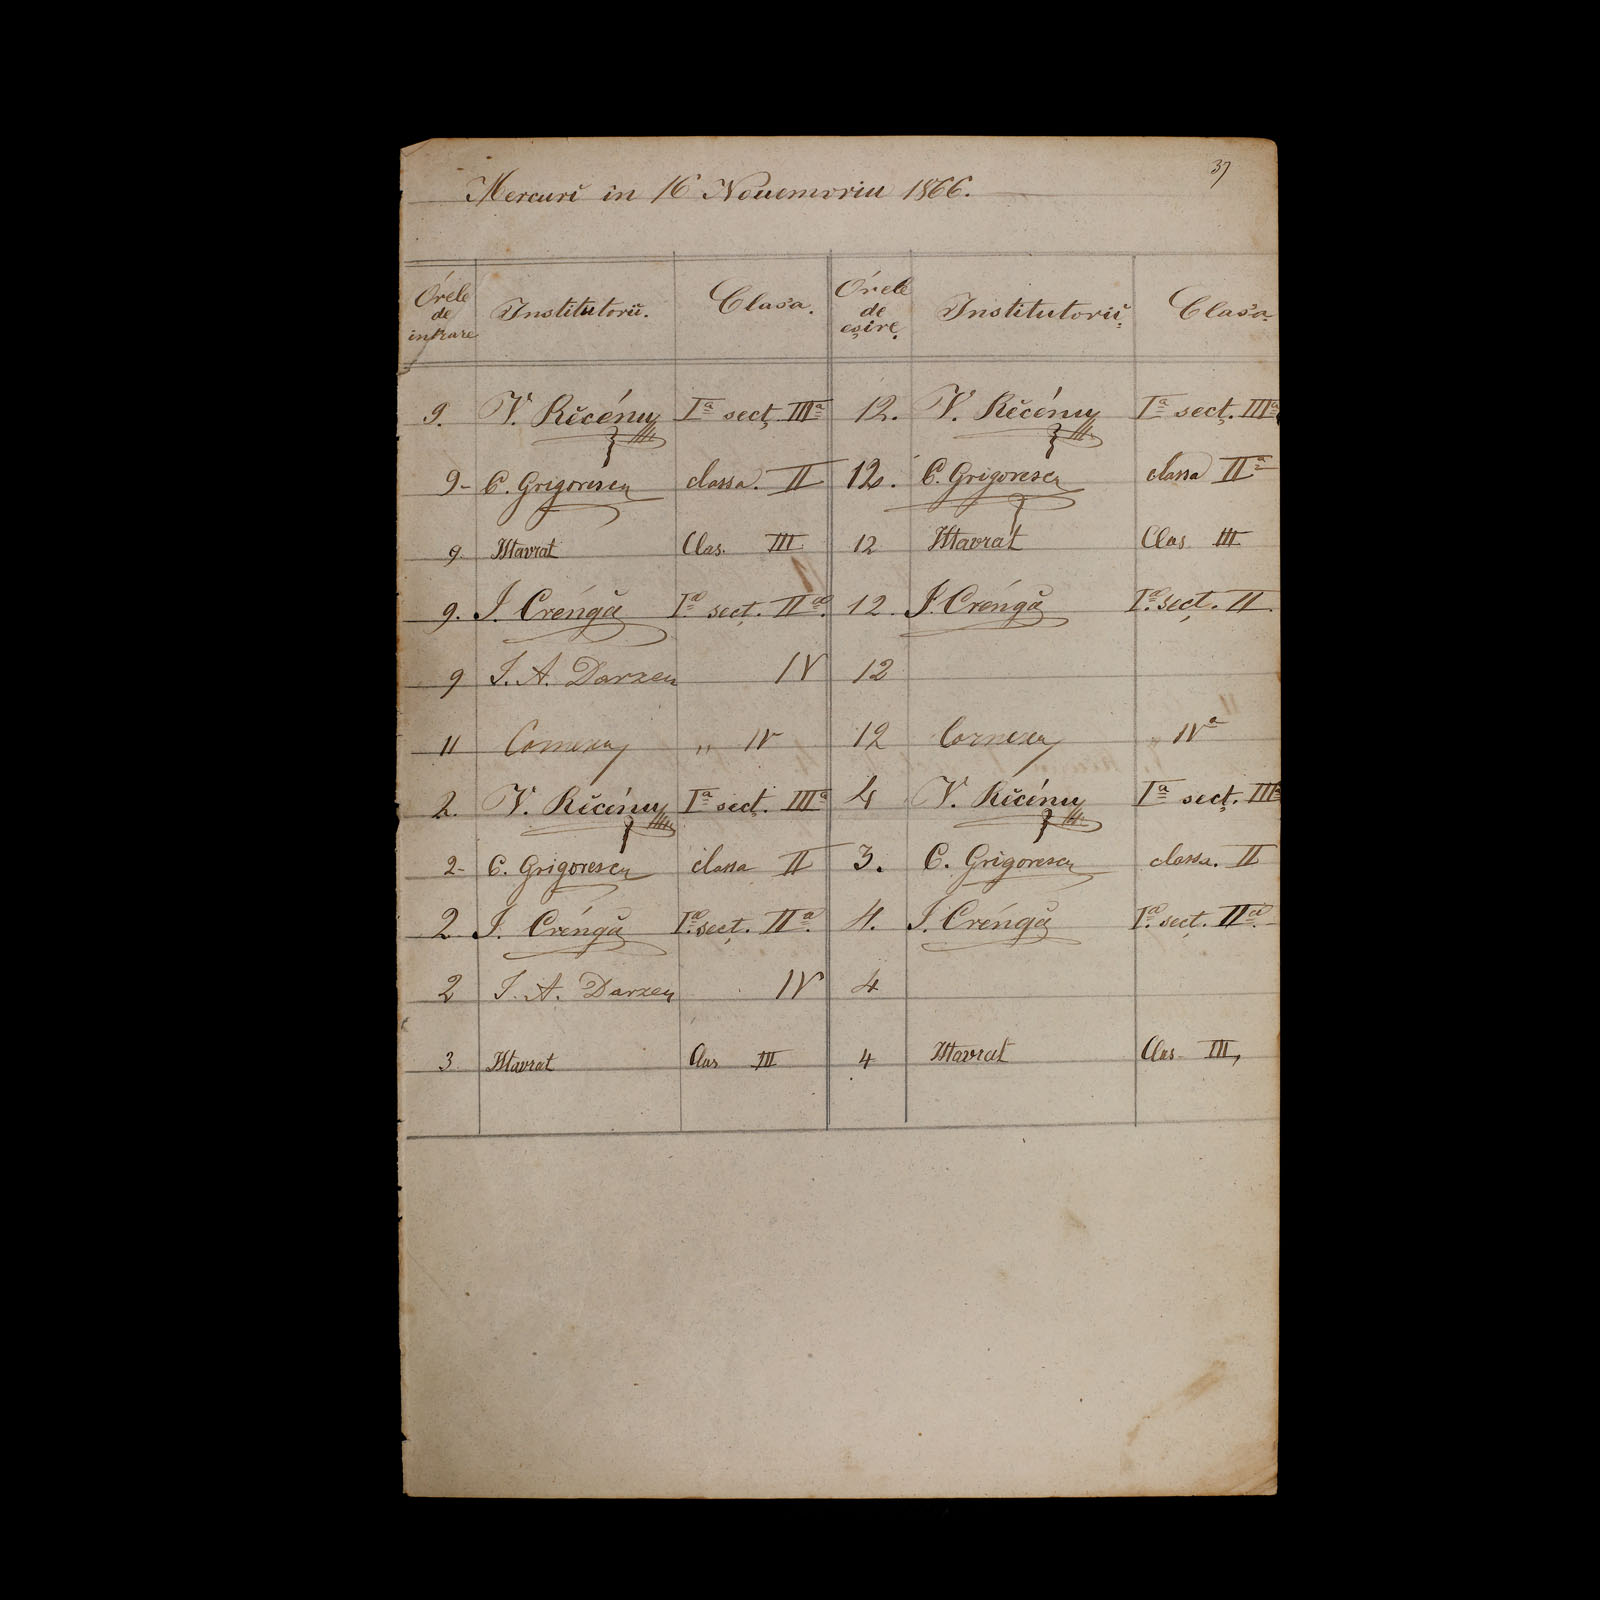 37
Mercuri in 16 Nouemvriu 1866.
Órele de intrare Institutorii. Clasa. Órele de eșire. Institutorii Clasa
9. V. Rĕcénu Iª secț. IIIª 12. V. Rĕcénu Iª secț. IIIª
9- C. Grigorescu classa. II 12. C. Grigorescu classa IIª
9. Mavrat Clas. III 12 Mavrat Clas III
9. I. Créngă Iª secț. IIª 12. I. Créngă Iª secț. II.
9 I. A. Darzeu IV 12
11 „ IV 12 „ IVª
2. V. Rĕcénu Iª secț. IIIª 4 V. Rĕcénu Iª secț. IIIª
2- C. Grigorescu classa II 3. C. Grigorescu classa. II
2 I. Créngă Iª secț. IIª. 4. I. Créngă Iª secț. IIª.
2 I. A. Darzeu IV 4
3 Mavrat Clas III 4 Mavrat Clas III,